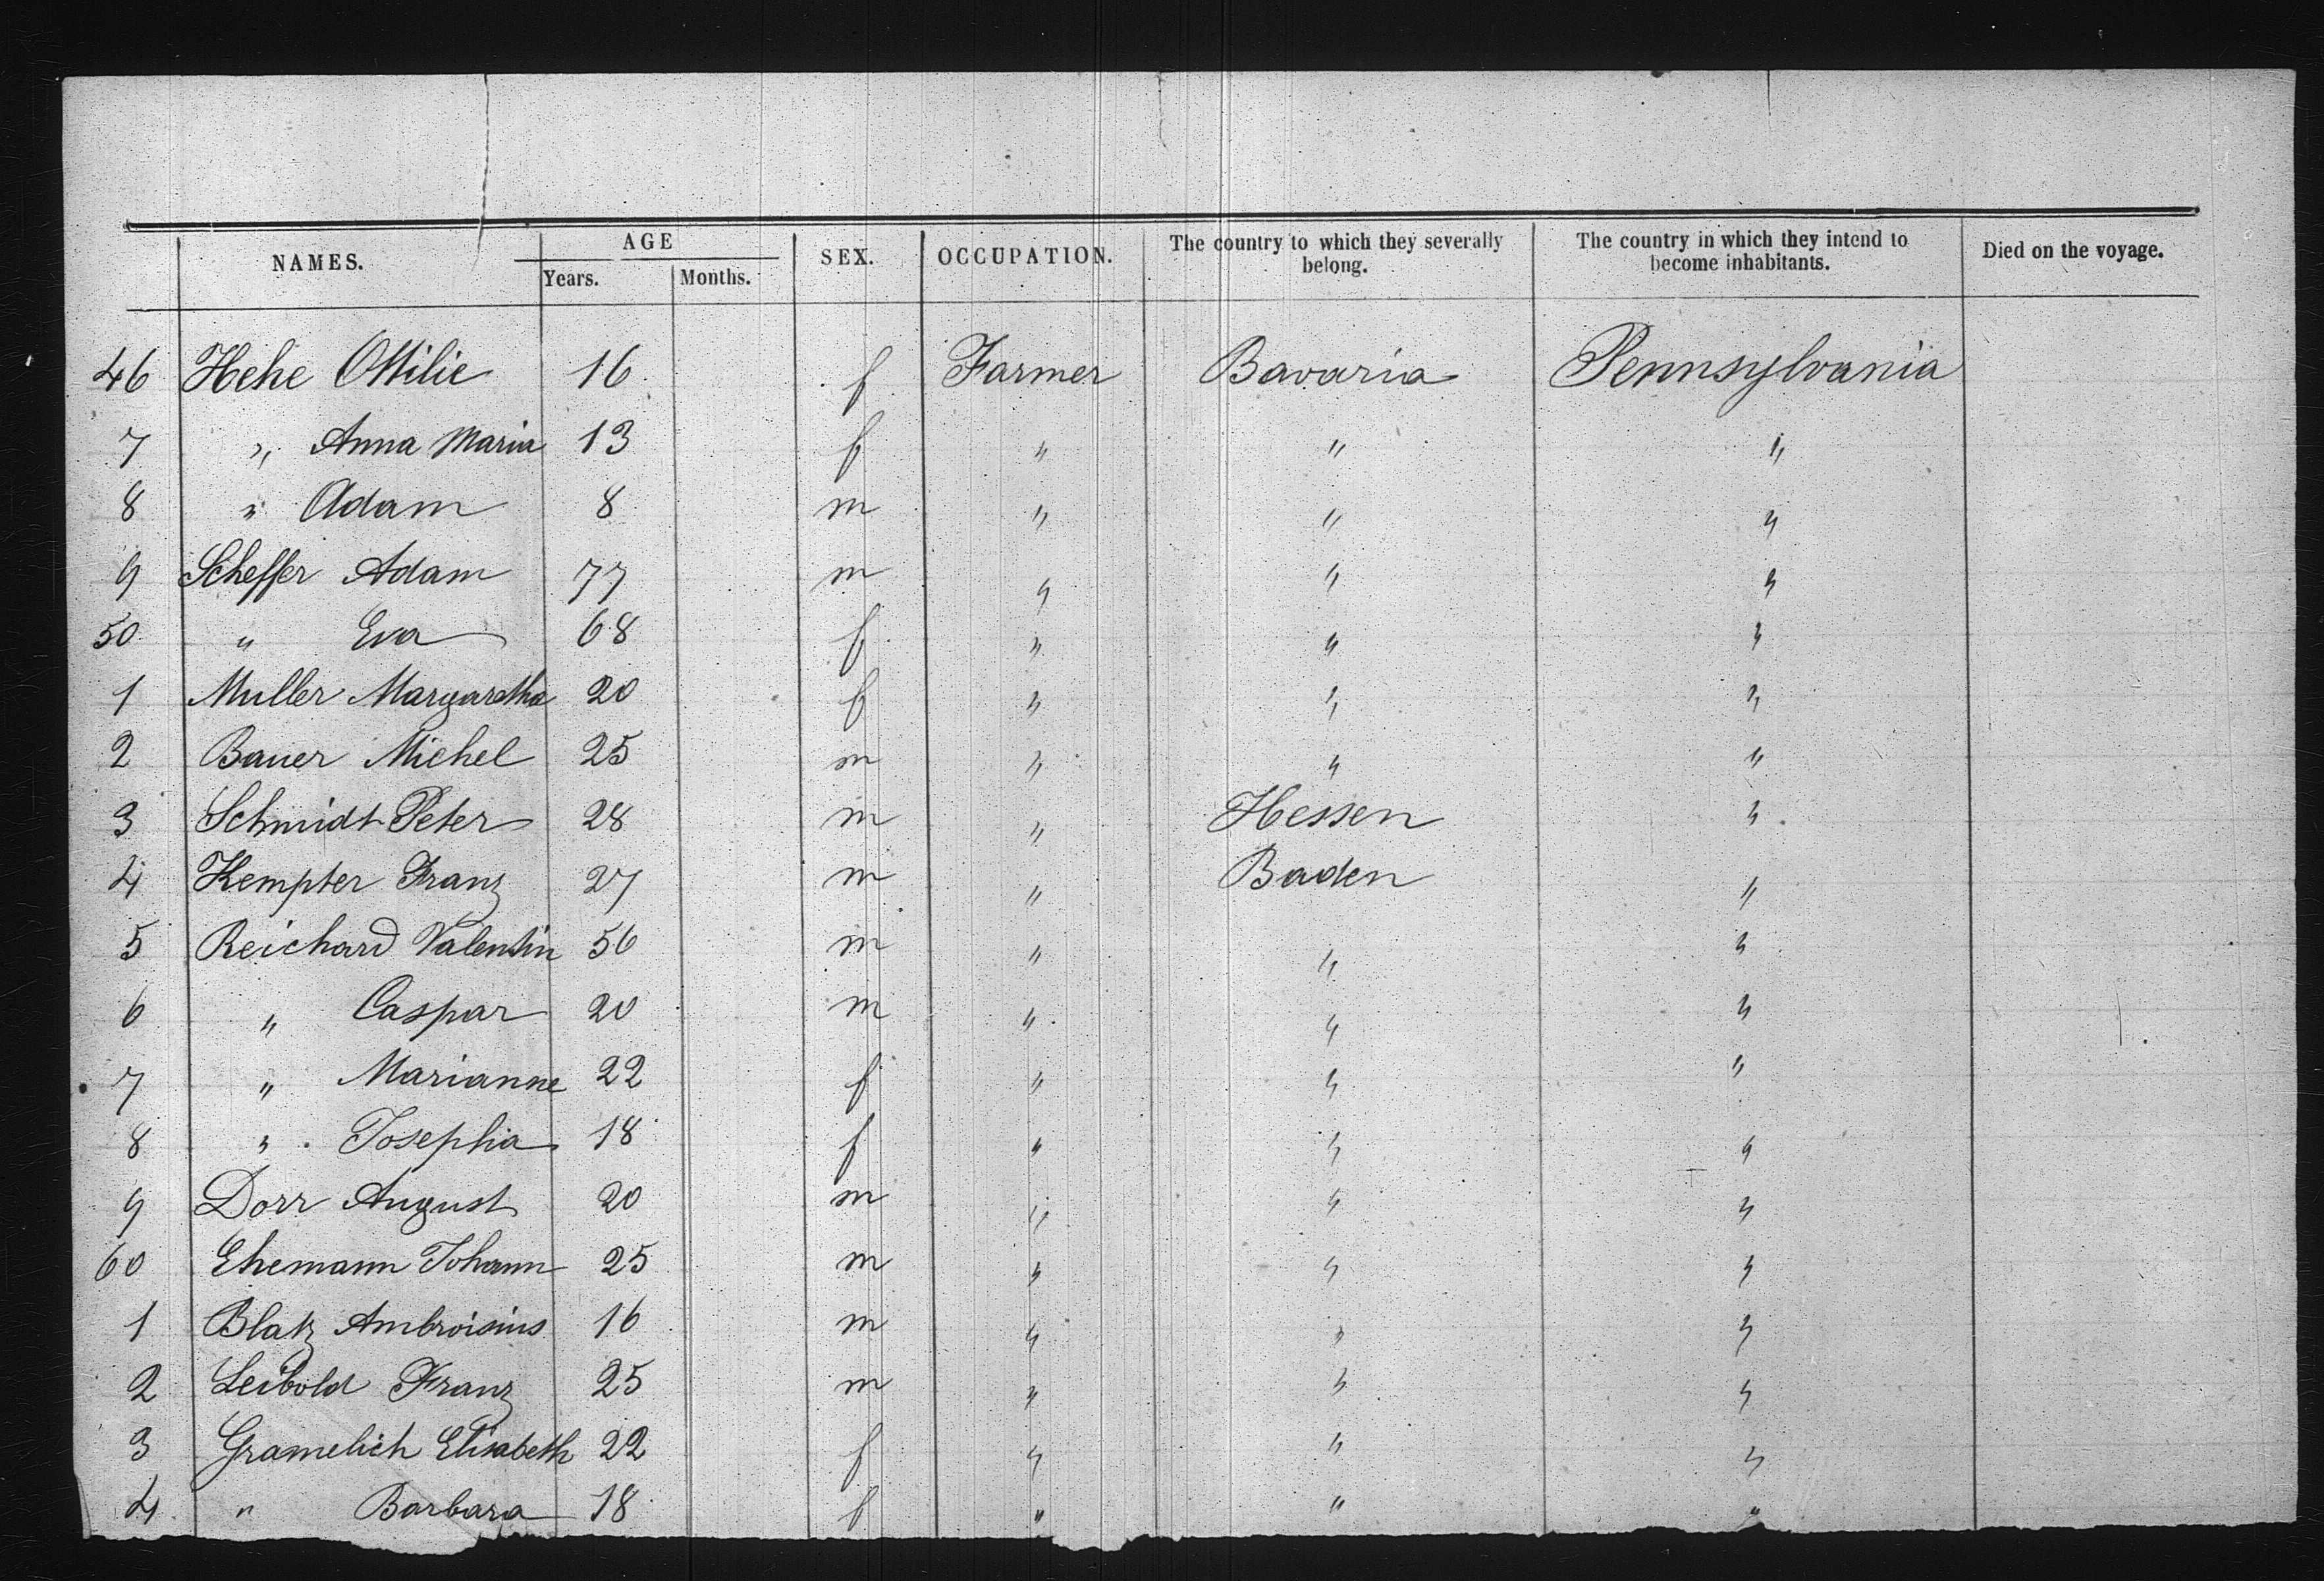 NAMES. AGE SEX. OCCUPATION. The country to which they severally belong. The country in which they intend to become inhabitants. Died on the voyage.
Years. Months.
46 Hehe Ottilie 16 f Farmer Bavaria Pennsylvania
7 " Anna Maria 13 f " " "
8 " Adam 8 m " " "
9 Scheffer Adam 77 m " " "
50 " Eva 68 f " " "
1 Muller Margaretha 20 f " " "
2 Bauer Michel 25 m " " "
3 Schmidt Peter 28 m " Hessen "
4 Kempter Franz 27 m " Baden "
5 Reichard Valentin 56 m " " "
6 " Caspar 20 m " " "
7 " Marianne 22 f " " "
8 " Josepha 18 f " " "
9 Dorr August 20 m " " "
60 Ehemann Johann 25 m " " "
1 Blatz Ambroisius 16 m " " "
2 Leibold Franz 25 m " " "
3 Gramelich Elisabeth 22 f " " "
4 " Barbara 18 f " " "